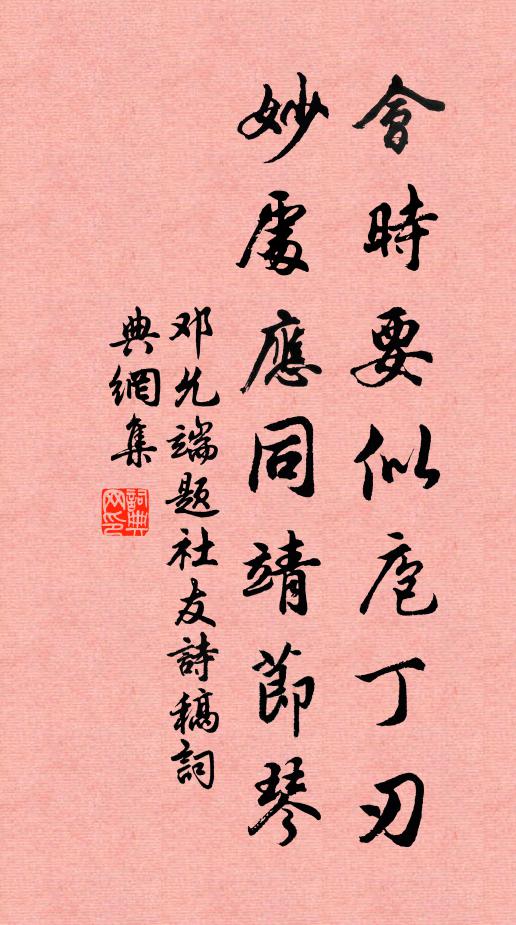 會時要似庖丁刃
妙處應同靖節琴
邓允端題社友詩稿詞
典網集
詞典網印